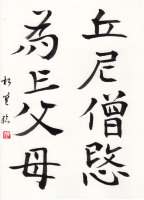 丘尼僧愍
為亡父母